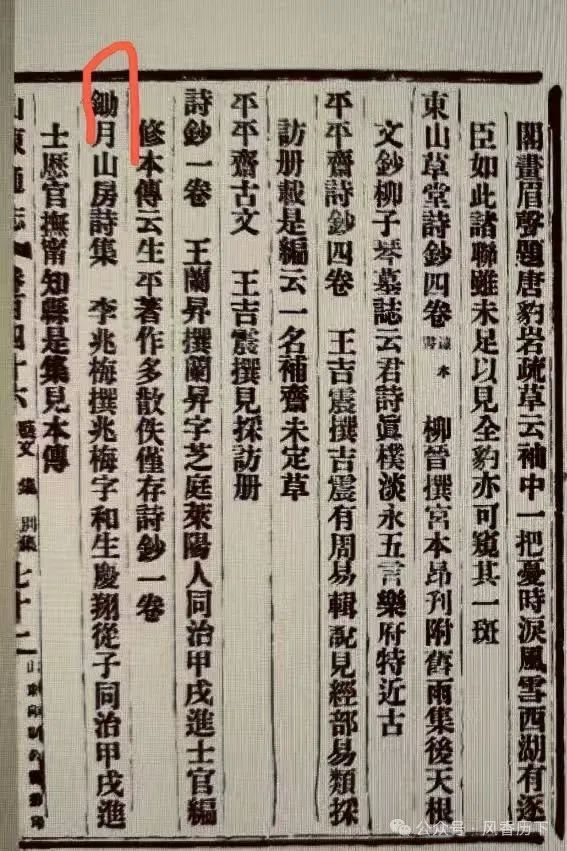 閣畫眉聲題唐豹岩疏草云袖中一把憂時淚風雪西湖有逐
臣如此諸聯雖未足以見全豹亦可窺其一斑
東山草堂詩鈔四卷 柳晉撰宮本昂刊附舊雨集後天根
文鈔柳子琴墓誌云君詩眞樸淡永五言樂府特近古
平平齋詩鈔四卷 王吉震撰吉震有周易輯說見經部易類採
訪册載是編云一名補齋未定草
平平齋古文 王吉震撰見採訪册
詩鈔一卷 王蘭昇撰蘭昇字芝庭萊陽人同治甲戌進士官編
修本傳云生平著作多散佚僅存詩鈔一卷
鋤月山房詩集 李兆梅撰兆梅字和生慶翔從子同治甲戌進
士歷官撫甯知縣是集見本傳
山東通志 卷百四十六 藝文 集 別集 七十二
公众号 · 风香历下